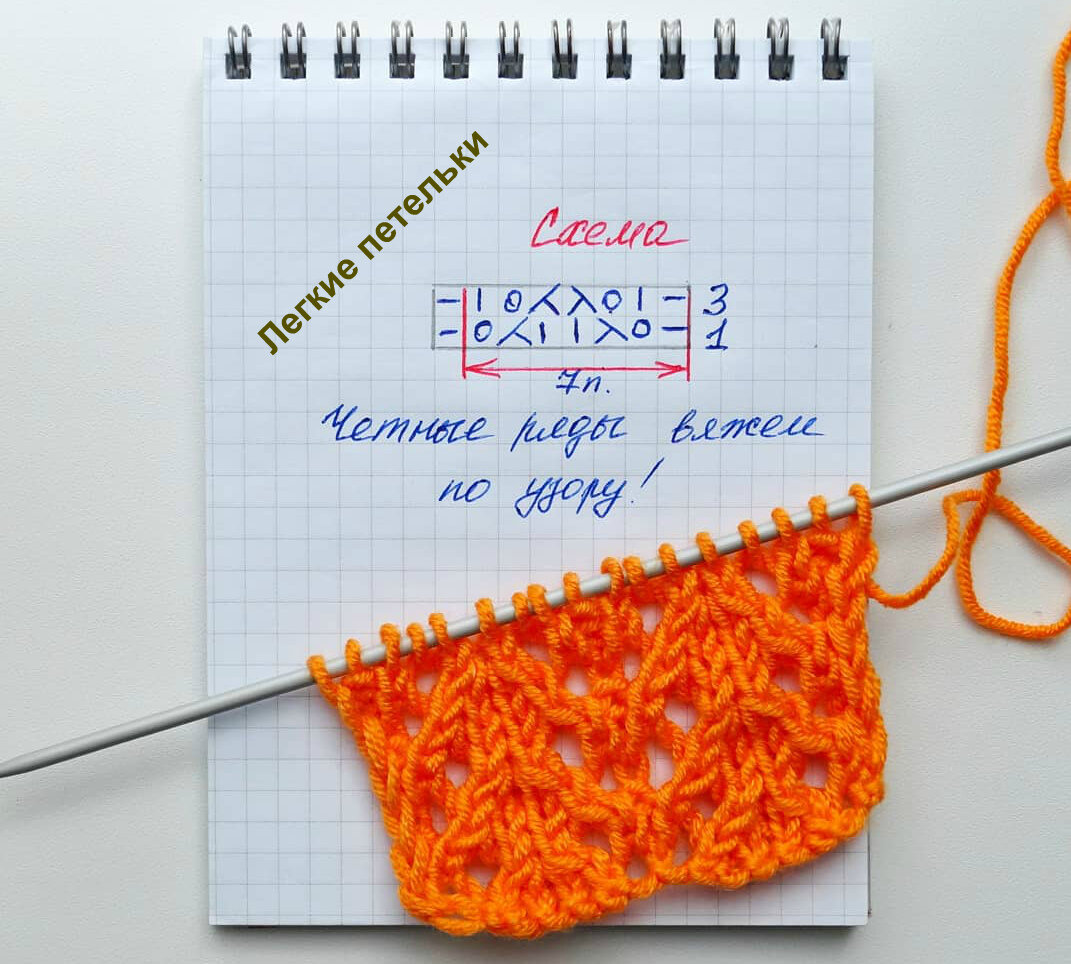 Легкие петельки
Схема
– | O ⋌ ⋋ O | – 3
– O ⋌ | | ⋋ O – 1
7п.
Четные ряды вяжем
по узору!